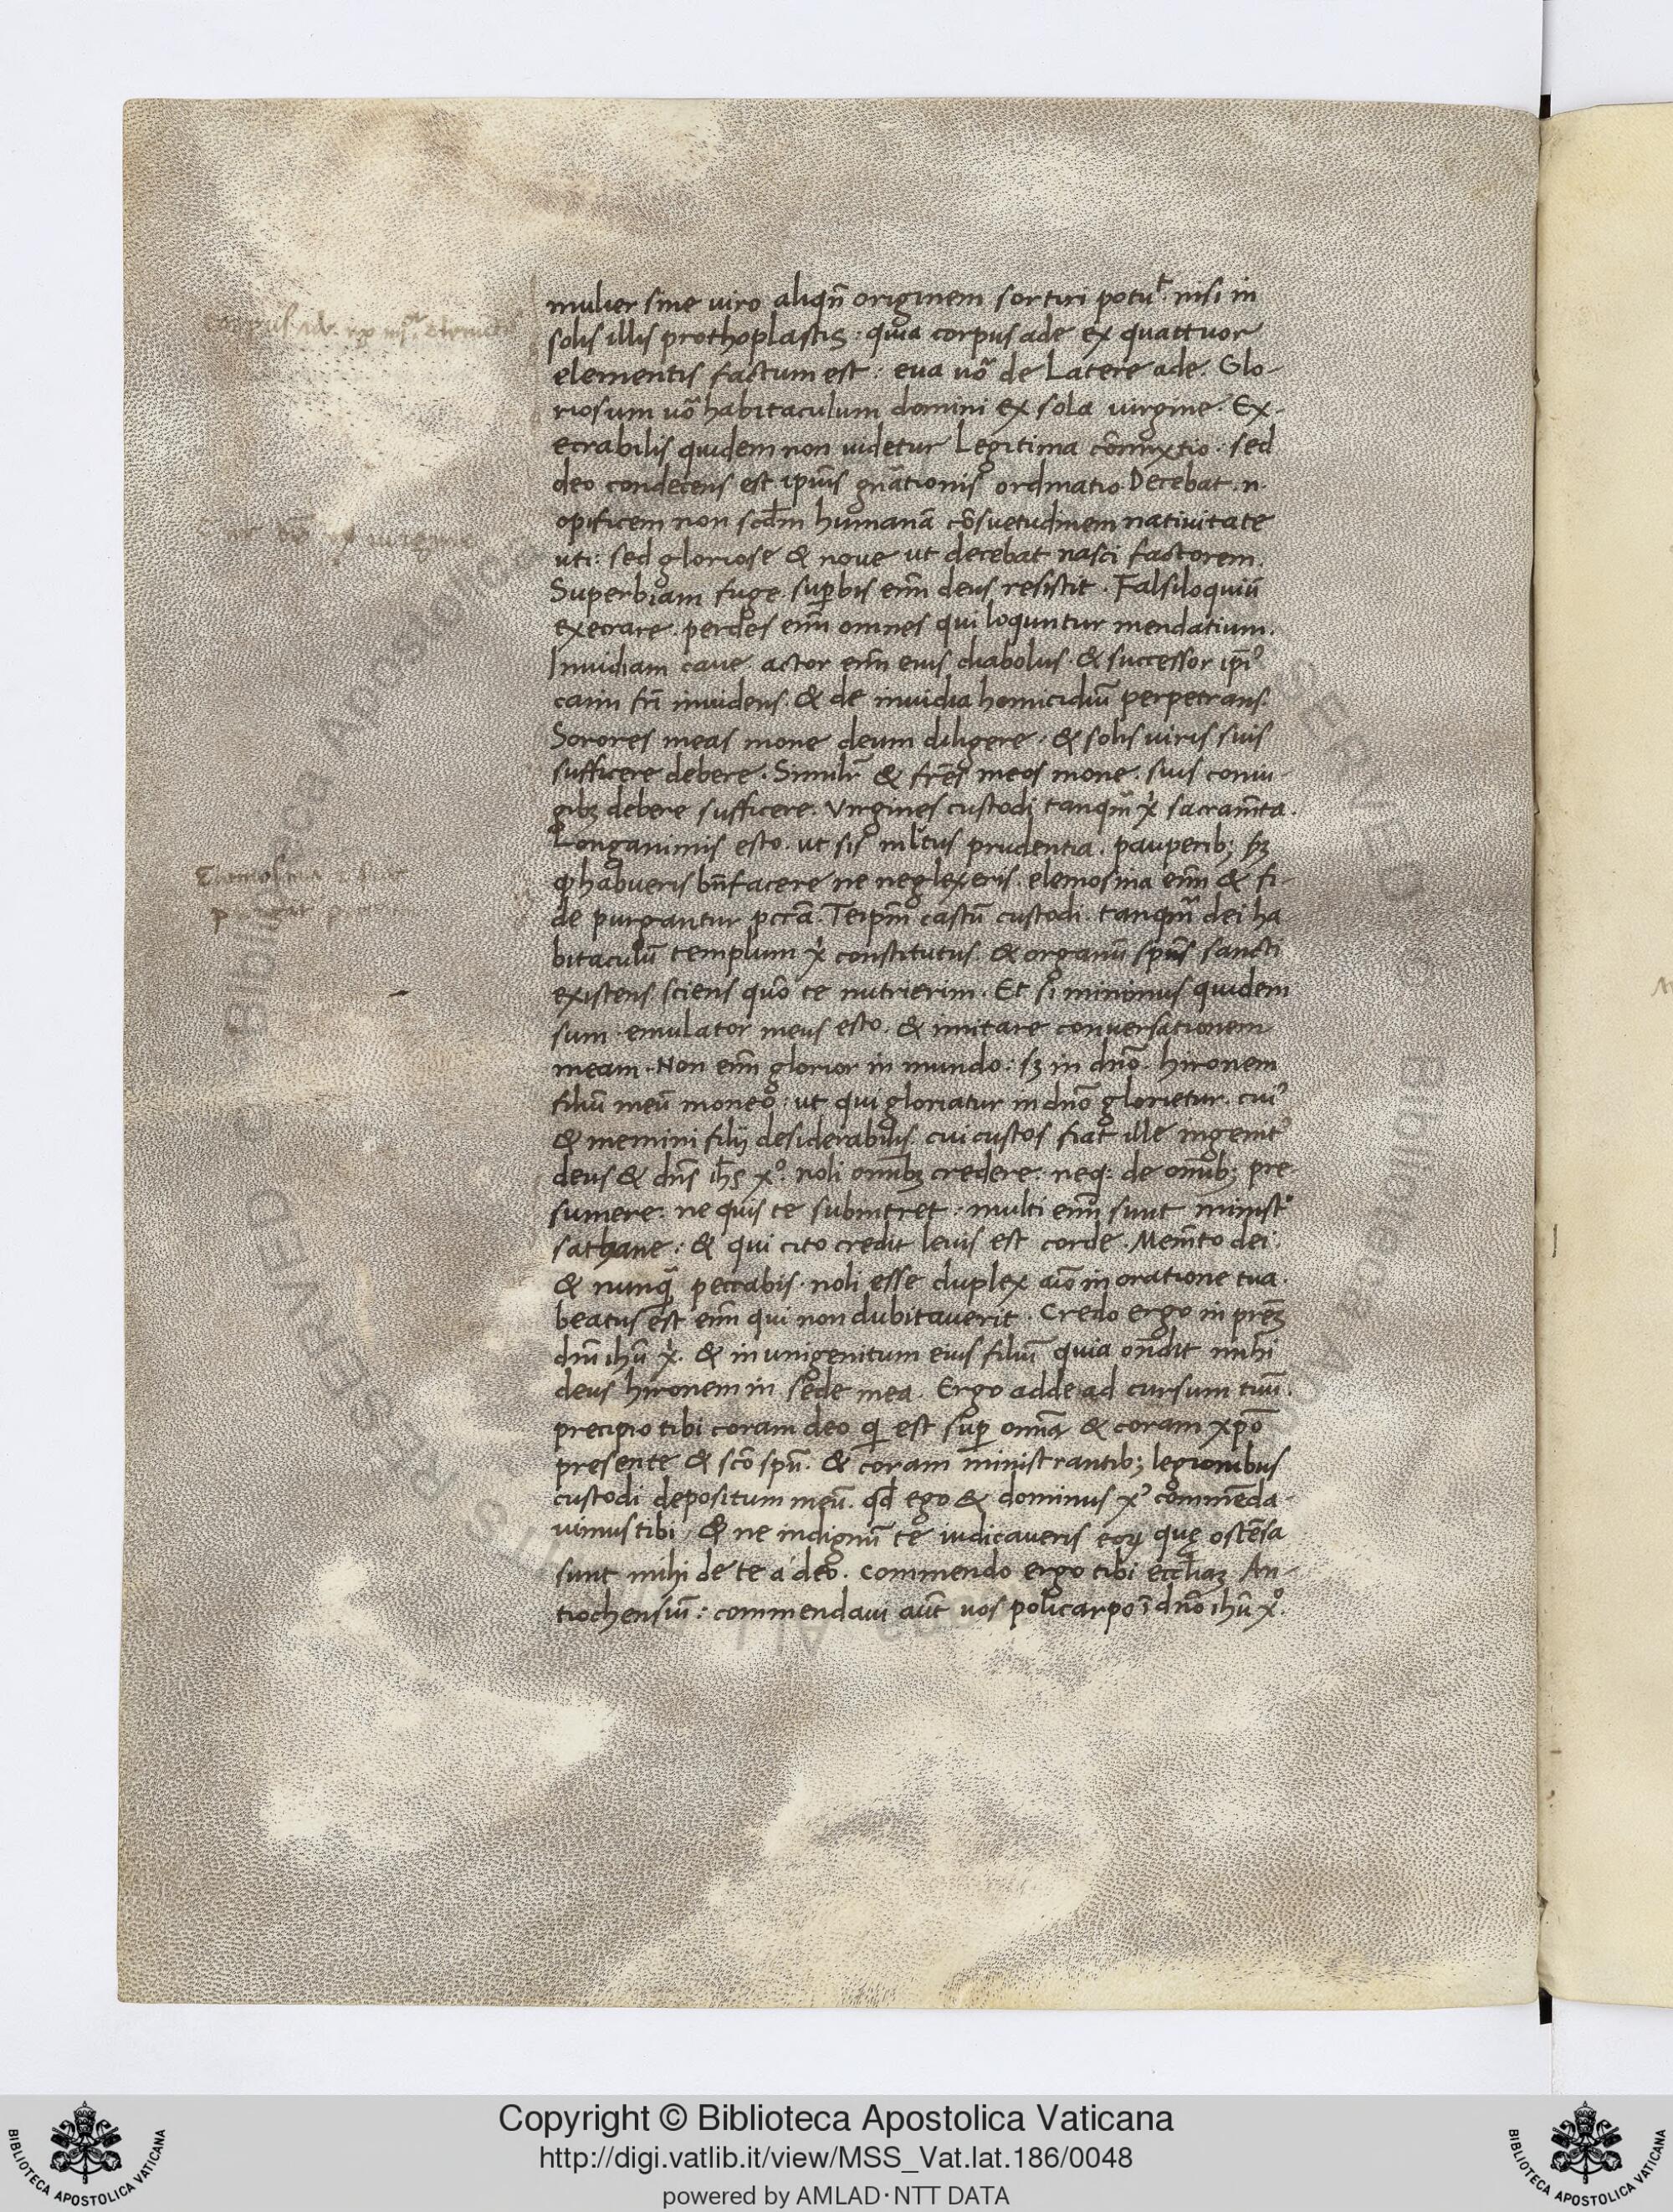 mulier sine uiro aliqñ originem sortiri potu᷑t nisi in
solis illis prothoplastis : quia corpus ade ex quattuor
elementis factum est : eua uõ de Latere ade. Glo-
riosum uõ habitaculum domini ex sola uirgine. Ex-
ecrabilis quidem non uidetur Legitima cõmixtio. sed
deo condecens est ipius gñationis ordinatio. Decebat .n.
opificem non scdm humanã cõsuetudinem natiuitate
uti : sed gloriose & noue ut decebat nasci factorem.
Superbiam fuge. supbis eñi deus resistit. Falsiloquiũ
execrare. perdes eñi omnes qui loquntur mendatium.
Inuidiam caue. actor eñi eius diabolus. & successor ipiꝰ
cain fri inuidens. & de inuidia homicidiũ perpetrans.
Sorores meas mone deum diligere. & solis uiris suis
sufficere debere. Similr & fres meos mone. suis coniu-
gibꝫ debere sufficere. Virgines custodi tanqm̃ xi sacramta.
Longanimis esto. ut sis mltus prudentia. pauperib; sꝫ
ꝙ habueris bñfacere ne neglexeris. elemosina eñi & fi-
de purgantur pccã. Teipm castũ custodi. tanqm̃ dei ha
bitaculũ templum xi constitutus. & organũ spũs sancti
existens sciens quõ te nutrierim. Et si minimus quidem
sum. emulator meus esto. & imitare conuersationem
meam. Non eñi glorior in mundo : sꝫ in dño. hironem
filiũ meũ moneo : ut qui gloriatur in dño glorietur. cuiꝰ
& memini filij desiderabilis. cui custos fiat ille ingenitꝰ
deus & dñs ihs xº. noli omibꝫ credere. neq: de omib; pre-
sumere. ne quis te subintret. multi eñi sunt minist
sathane : & qui cito credit leuis est corde. Memto dei
& nunq̃ peccabis. noli esse duplex aio in oratione tua.
beatus est eñi qui non dubitauerit. Credo ergo in preꝫ
dñi ihũ xi. & in unigenitum eius filiũ quia oñdit mihi
deus hironem in sede mea. Ergo adde ad cursum tuũ.
precipio tibi coram deo qi est sup omia & coram xpõ
presente & scõ spũ. & coram ministrantib; legionibus
custodi depositum meũ. qd ego & dominus xº commẽda-
uimus tibi, & ne indignũ te iudicaueris eoꝝ quę ostẽsa
sunt mihi de te a deo. Commendo ergo tibi eccliaꝫ An-
tiochensiũ : commendaui aũt uos policarpo ĩ dño ihũ xº.
Copyright © Biblioteca Apostolica Vaticana
http://digi.vatlib.it/view/MSS_Vat.lat.186/0048
powered by AMLAD · NTT DATA
BIBLIOTECA APOSTOLICA VATICANA
BIBLIOTECA APOSTOLICA VATICANA